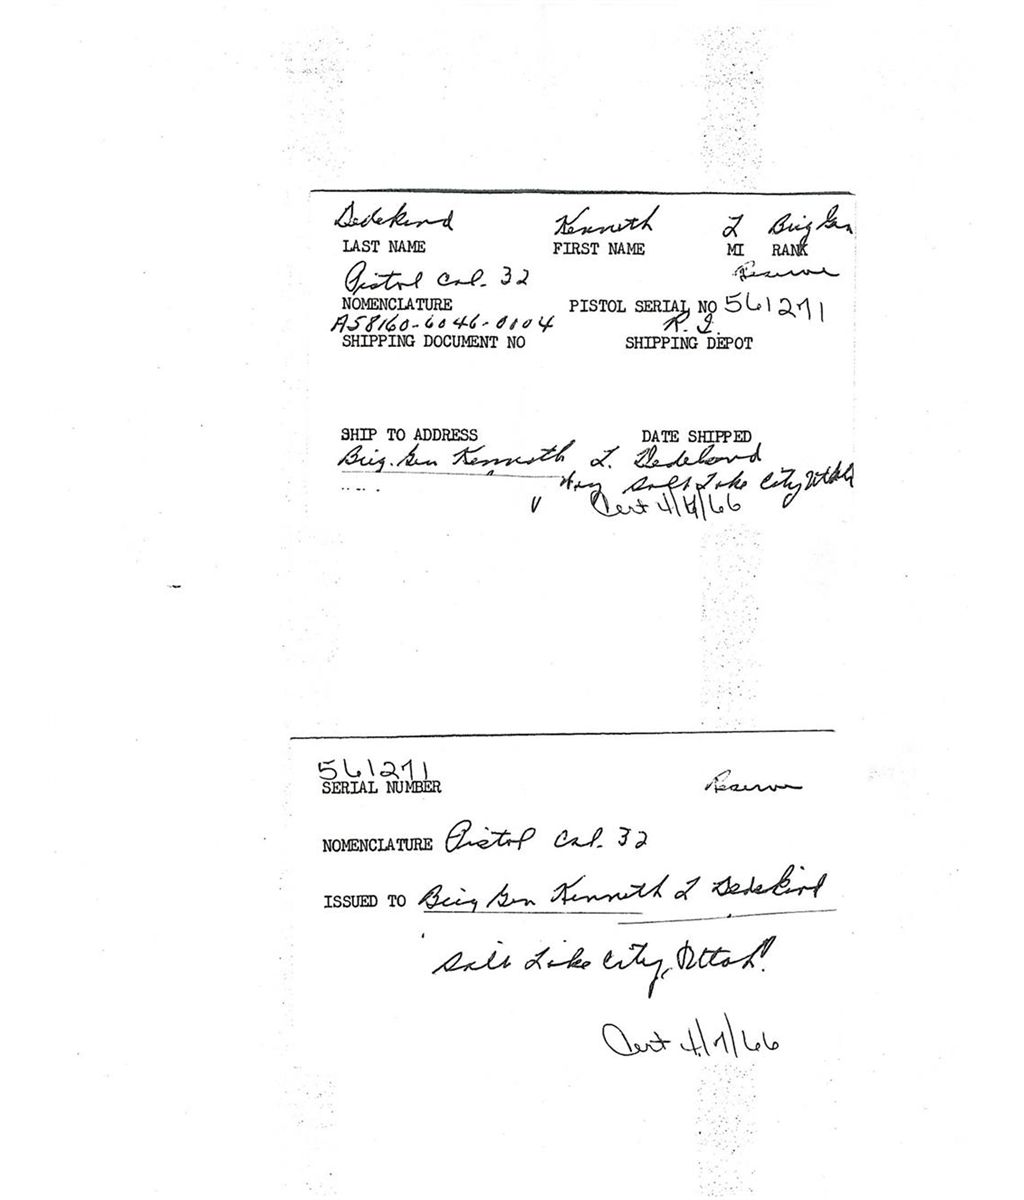 Dedekind Kenneth L Brig Gen
LAST NAME FIRST NAME MI RANK
Pistol Cal. 32 Reserve
NOMENCLATURE PISTOL SERIAL NO 561271
A58160-6046-0004 R.I.
SHIPPING DOCUMENT NO SHIPPING DEPOT
SHIP TO ADDRESS DATE SHIPPED
Brig. Gen Kenneth L. Dedekind
Salt Lake City, Utah
Cert 4/7/66
561271
SERIAL NUMBER Reserve
NOMENCLATURE Pistol Cal. 32
ISSUED TO Brig Gen Kenneth L Dedekind
Salt Lake City, Utah
Cert 4/7/66